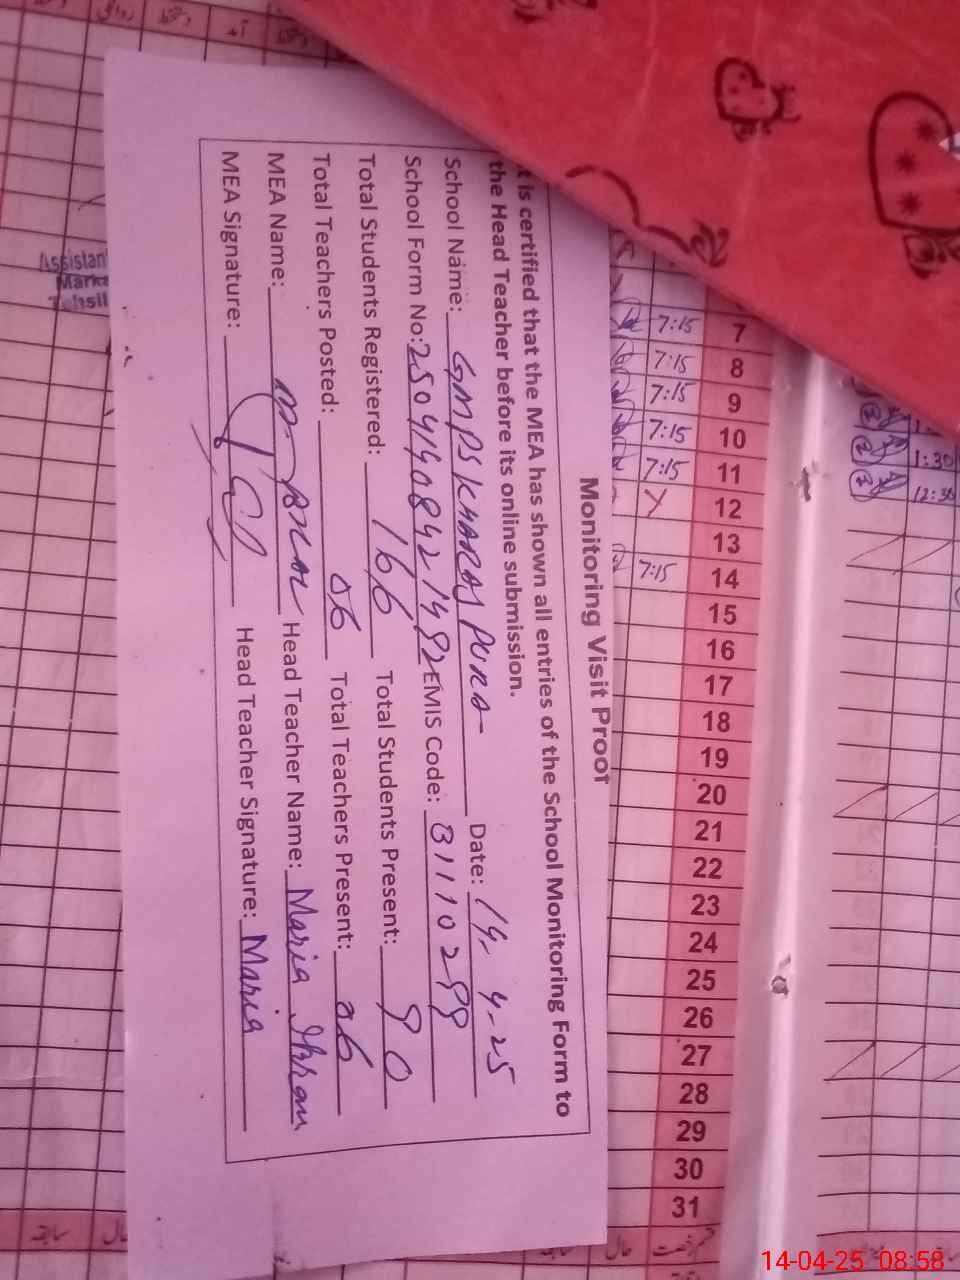 Monitoring Visit Proof
t is certified that the MEA has shown all entries of the School Monitoring Form to
the Head Teacher before its online submission.
School Name: GMPS KHARAJ PURA Date: 14-4-25
School Form No: 250414084214 92 EMIS Code: 31110299
Total Students Registered: 166 Total Students Present: 90
Total Teachers Posted: 06 Total Teachers Present: 06
MEA Name: M- BILAL Head Teacher Name: Maria
MEA Signature: Head Teacher Signature: Maria
Assistan
Marke
Tehsil
7:15 7
7:15 8
7:15 9
7:15 10
7:15 11
X 12
13
7:15 14
15
16
17
18
19
20
21
22
23
24
25
26
27
28
29
30
31
1:30
12:30
سابقہ
حال
14-04-25 08:58